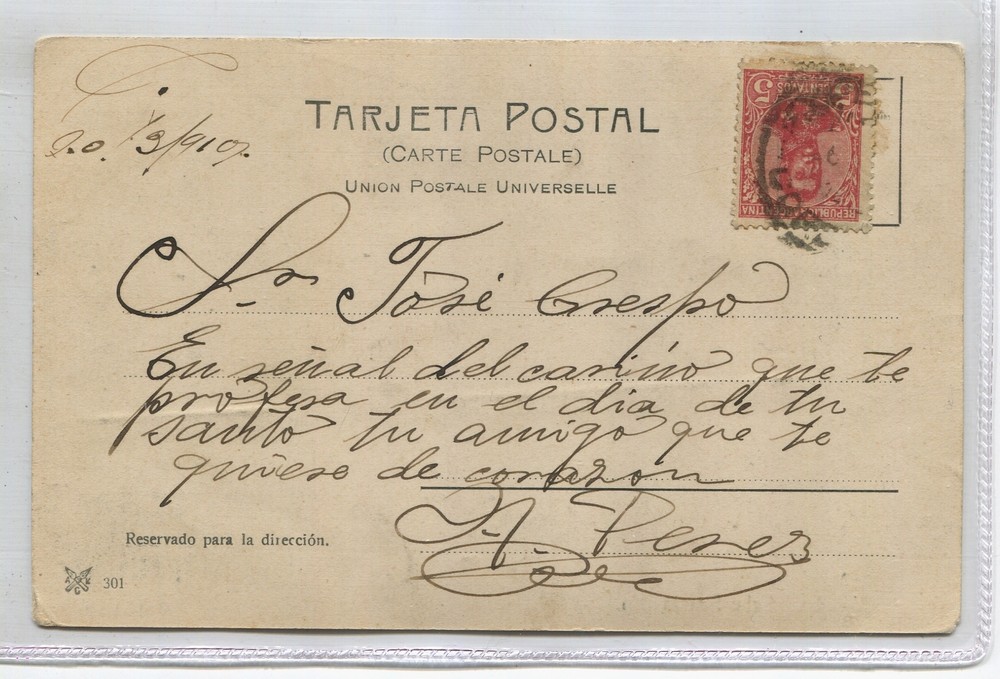 TARJETA POSTAL
(CARTE POSTALE)
UNION POSTALE UNIVERSELLE
5 CENTAVOS 5
REPUBLICA ARGENTINA
Sr José Crespo
En señal del cariño que te
profesa en el dia de tu
santo tu amigo que te
quiere de corazon
Perez
Reservado para la dirección.
301